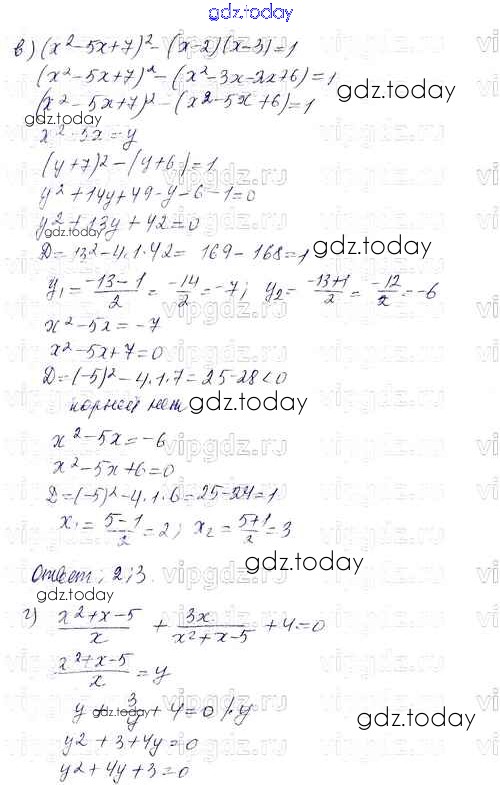 gdz.today
в) (x²-5x+7)²-(x-2)(x-3)=1
(x²-5x+7)²-(x²-3x-2x+6)=1
gdz.today
(x²-5x+7)²-(x²-5x+6)=1
x²-5x=y
gdz.today
(y+7)²-(y+6)=1
y²+14y+49-y-6-1=0
y²+13y+42=0
gdz.today
D=13²-4·1·42=169-168=1
gdz.today
y₁=(-13-1)/2=-14/2=-7; y₂=(-13+1)/2=-12/2=-6
x²-5x=-7
x²-5x+7=0
D=(-5)²-4·1·7=25-28<0
корней нет
gdz.today
x²-5x=-6
x²-5x+6=0
D=(-5)²-4·1·6=25-24=1
x₁=(5-1)/2=2; x₂=(5+1)/2=3
gdz.today
Ответ: 2; 3.
г) (x²+x-5)/x + 3x/(x²+x-5) +4=0
gdz.today
(x²+x-5)/x=y
y+3/y+4=0 |·y
gdz.today
gdz.today
y²+3+4y=0
y²+4y+3=0